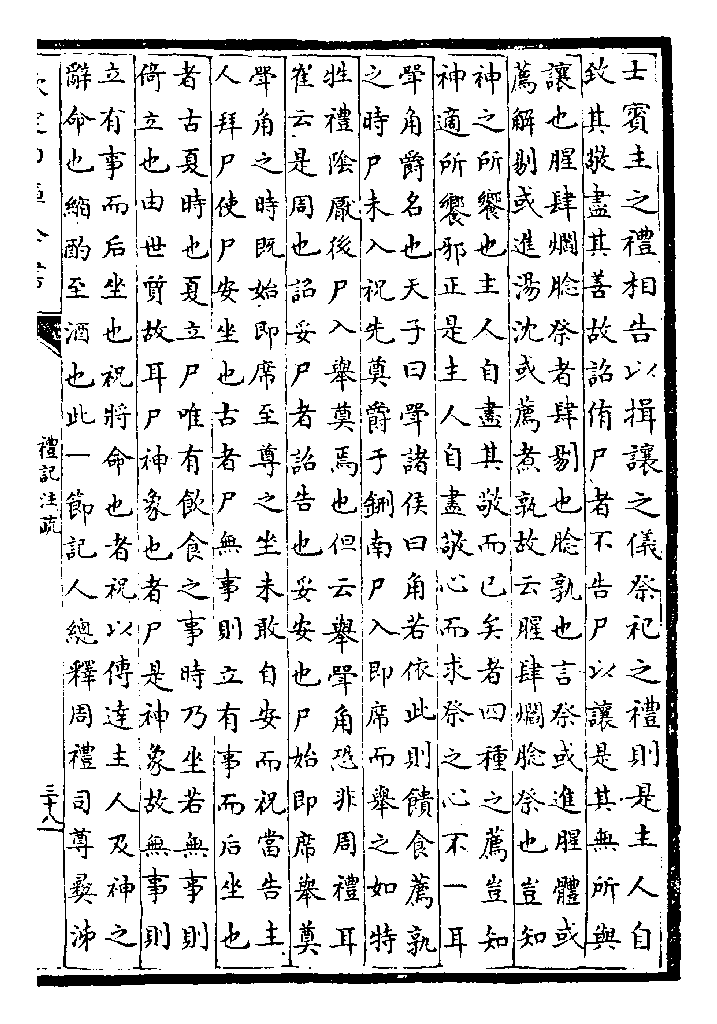 士賓主之禮相告以揖讓之儀祭祀之禮則是主人自
致其敬盡其善故詔侑尸者不告尸以讓是其無所與
讓也腥肆爓腍祭者肆剔也腍孰也言祭或進腥體或
薦解剔或進湯沈或薦煮孰故云腥肆爓腍祭也豈知
神之所饗也主人自盡其敬而已矣者四種之薦豈知
神適所饗邪正是主人自盡敬心而求祭之心不一耳
斝角爵名也天子曰斝諸侯曰角若依此則饋食薦孰
之時尸未入祝先奠爵于鉶南尸入即席而舉之如特
牲禮陰厭後尸入舉奠焉也但云舉斝角恐非周禮耳
崔云是周也詔妥尸者詔告也妥安也尸始即席舉奠
斝角之時既始即席至尊之坐未敢自安而祝當告主
人拜尸使尸安坐也古者尸無事則立有事而后坐也
者古夏時也夏立尸唯有飲食之事時乃坐若無事則
倚立也由世質故耳尸神象也者尸是神象故無事則
立有事而后坐也祝將命也者祝以傳達主人及神之
辭命也縮酌至酒也此一節記人總釋周禮司尊彞泲
禮記注疏
三十八